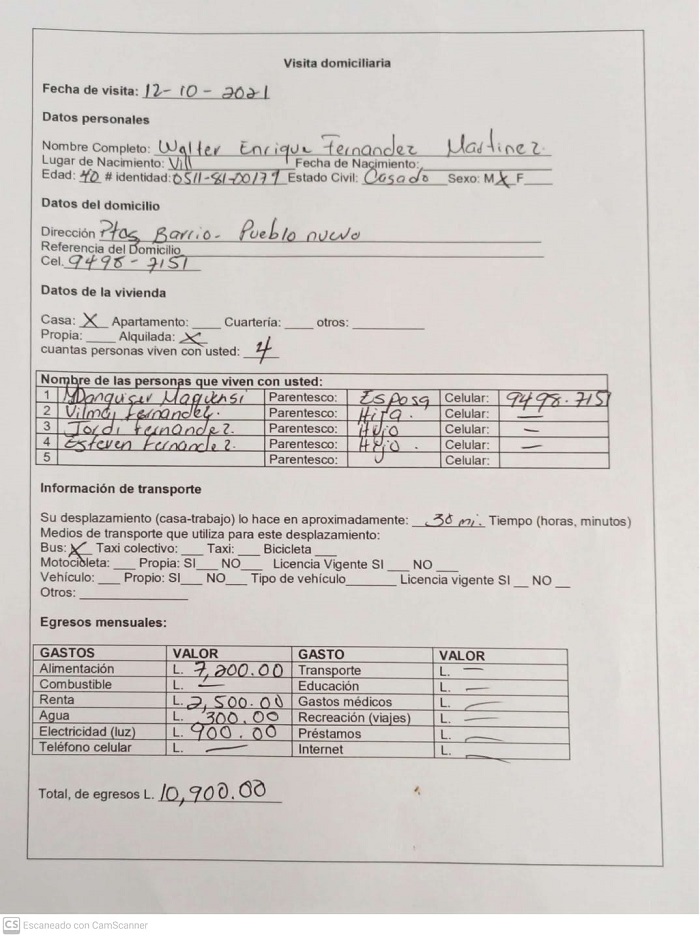 Visita domiciliaria
Fecha de visita: 12-10-2021
Datos personales
Nombre Completo: Walter Enrique Fernandez Martinez.
Lugar de Nacimiento: Vill Fecha de Nacimiento:
Edad: 40 # identidad: 0511-81-00179 Estado Civil: Casado Sexo: M X F
Datos del domicilio
Dirección Ptas Barrio- Pueblo nuevo
Referencia del Domicilio
Cel. 9498-7151
Datos de la vivienda
Casa: X Apartamento: Cuartería: otros:
Propia: Alquilada: X
cuantas personas viven con usted: 4
Nombre de las personas que viven con usted:
1 Parentesco: Esposa Celular: 9498-715
2 Vilma Fernandez. Parentesco: Hija. Celular: —
3 Jordi Fernandez. Parentesco: Hijo Celular: —
4 Esteven Fernandez. Parentesco: Hijo. Celular: —
5 Parentesco: Celular:
Información de transporte
Su desplazamiento (casa-trabajo) lo hace en aproximadamente: 30 mi. Tiempo (horas, minutos)
Medios de transporte que utiliza para este desplazamiento:
Bus: X Taxi colectivo: Taxi: Bicicleta
Motocicleta: Propia: SI NO Licencia Vigente SI NO
Vehículo: Propio: SI NO Tipo de vehículo Licencia vigente SI NO
Otros:
Egresos mensuales:
GASTOS VALOR GASTO VALOR
Alimentación L. 7,200.00 Transporte L. —
Combustible L. — Educación L. —
Renta L. 2,500.00 Gastos médicos L. —
Agua L. 300.00 Recreación (viajes) L. —
Electricidad (luz) L. 900.00 Préstamos L. —
Teléfono celular L. — Internet L. —
Total, de egresos L. 10,900.00
CS Escaneado con CamScanner